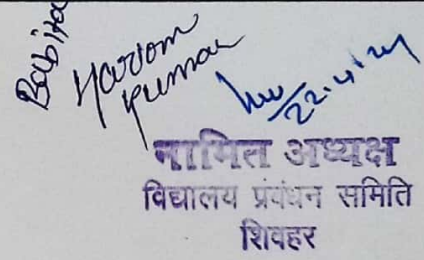 Babita
Harom
Kumar
22.4.24
नामित अध्यक्ष
विद्यालय प्रबंधन समिति
शिवहर